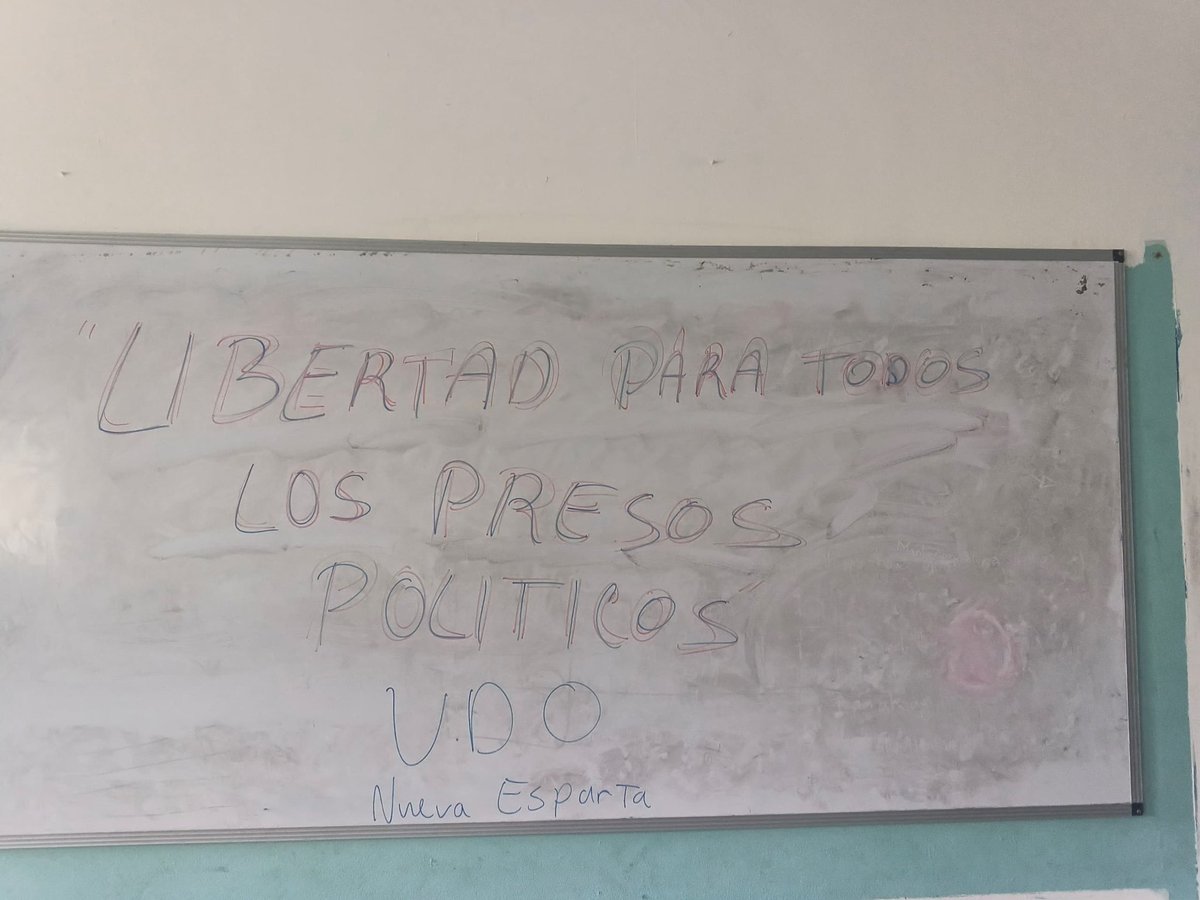 "LIBERTAD PARA TODOS
LOS PRESOS
POLITICOS"
UDO
Nueva Esparta